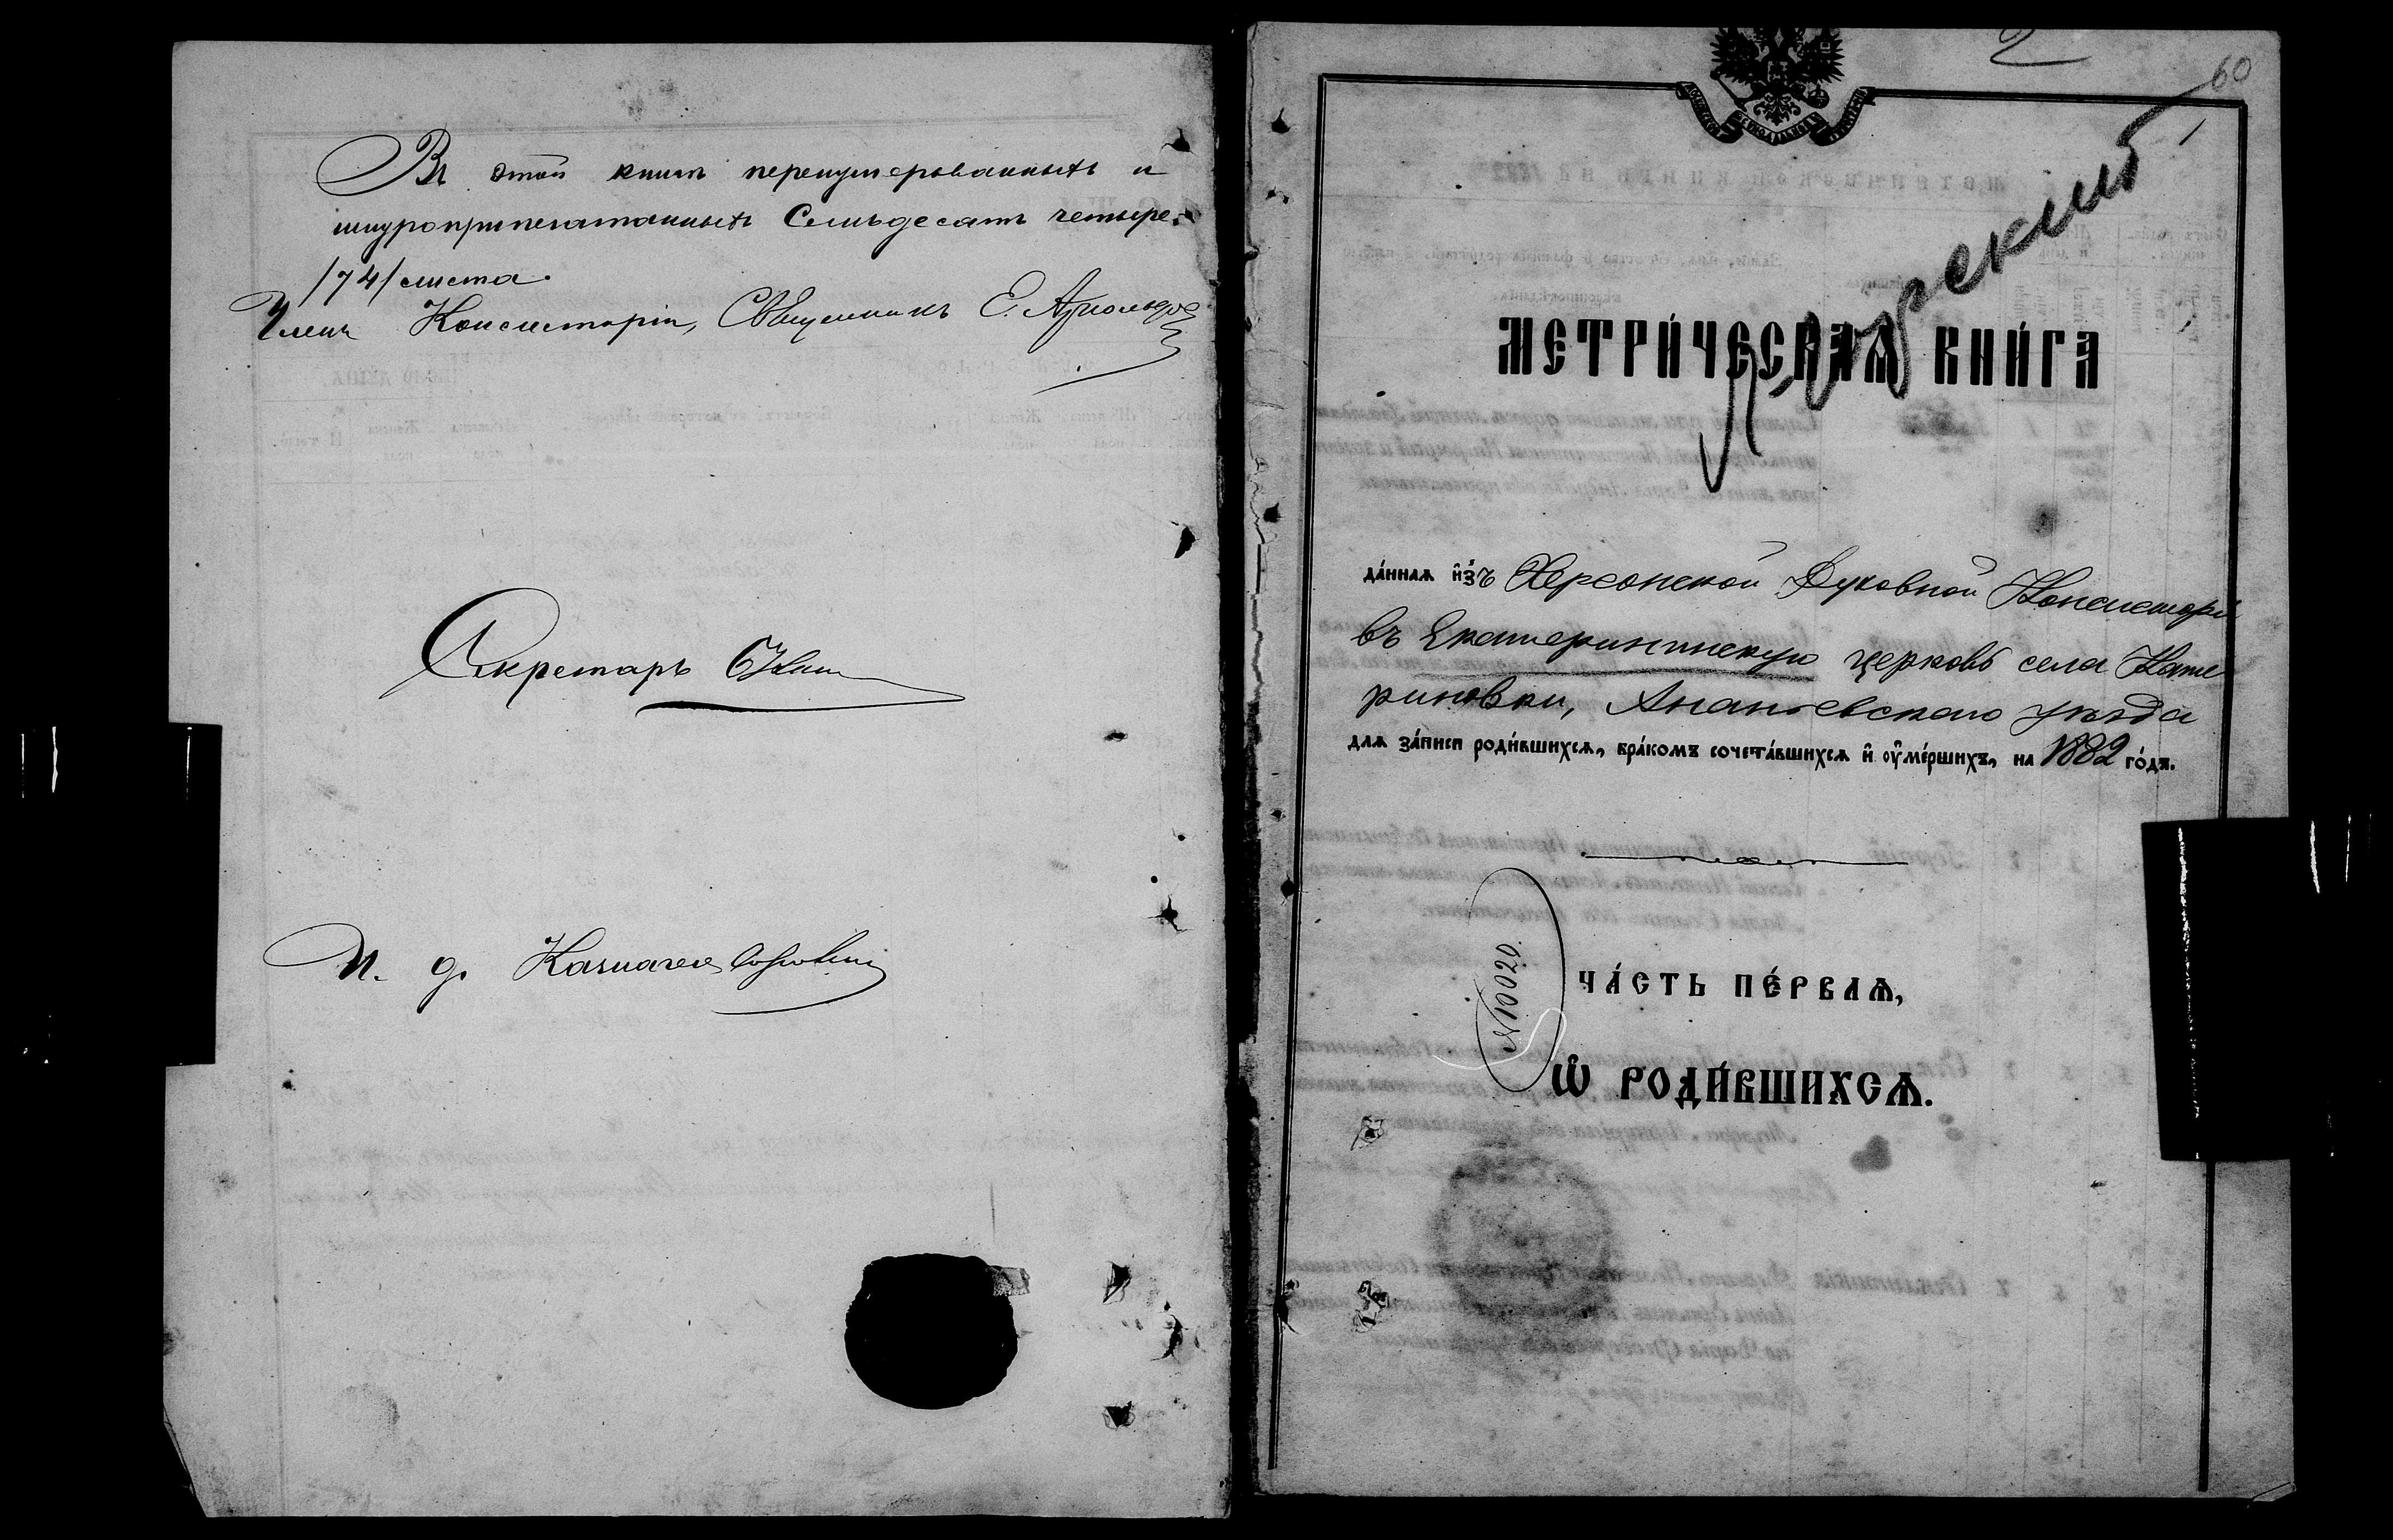 Въ этой книгѣ перенумерованныхъ и
шнуроприпечатанныхъ Семьдесятъ четыре
/74/ листа.
Членъ Консисторіи, Священникъ Е.
Секретарь
И. д. Казначея
2
60
1
МЕТРИ́ЧЕСКАѦ КНИ́ГА
да́ннаѧ и҆з̾ Херсонской Духовной Консисторіи
въ Екатерининскую церковь села Кате
риновки, Ананьевскаго уѣзда
длѧ за́писи роди́вшихсѧ, бра́комъ сочета́вшихсѧ и҆ ᲂу҆ме́ршихъ, на 1882 го́дъ.
№10020.
ЧА́СТЬ ПЕ́РВАѦ,
Ѽ РОДИ́ВШИХСѦ.